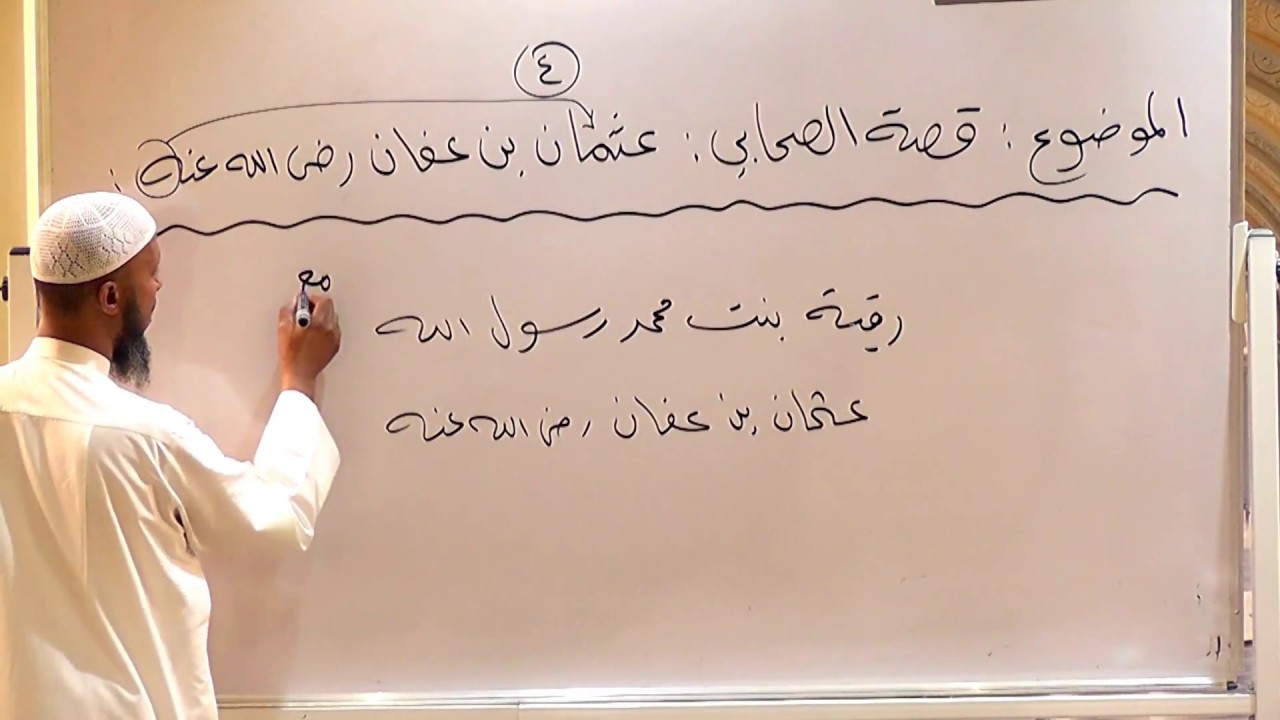 ٤
الموضوع : قصة الصحابي : عثمان بن عفان رضى الله عنه :
رقية بنت محمد رسول الله مع
عثمان بن عفان رضى الله عنه